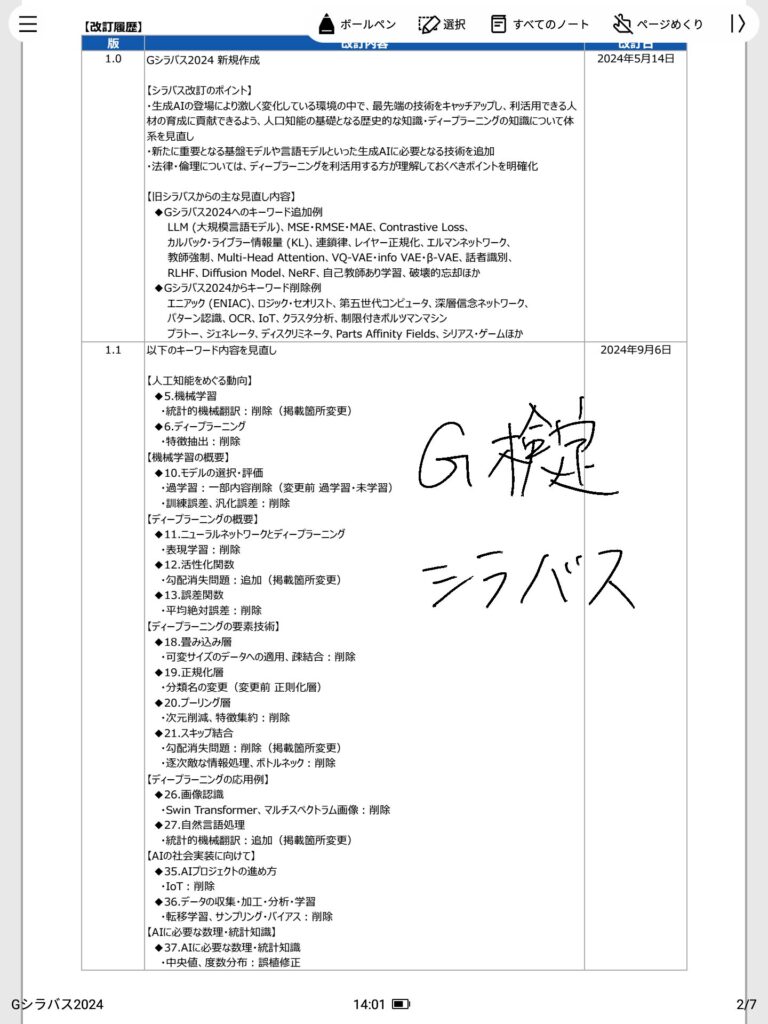 【改訂履歴】 ボールペン 選択 すべてのノート ページめくり
版 改訂内容 改訂日
1.0 Gシラバス2024 新規作成 2024年5月14日
【シラバス改訂のポイント】
・生成AIの登場により激しく変化している環境の中で、最先端の技術をキャッチアップし、利活用できる人
材の育成に貢献できるよう、人口知能の基礎となる歴史的な知識・ディープラーニングの知識について体
系を見直し
・新たに重要となる基盤モデルや言語モデルといった生成AIに必要となる技術を追加
・法律・倫理については、ディープラーニングを利活用する方が理解しておくべきポイントを明確化
【旧シラバスからの主な見直し内容】
◆Gシラバス2024へのキーワード追加例
LLM (大規模言語モデル)、MSE・RMSE・MAE、Contrastive Loss、
カルバック・ライブラー情報量 (KL)、連鎖律、レイヤー正規化、エルマンネットワーク、
教師強制、Multi-Head Attention、VQ-VAE・info VAE・β-VAE、話者識別、
RLHF、Diffusion Model、NeRF、自己教師あり学習、破壊的忘却ほか
◆Gシラバス2024からキーワード削除例
エニアック (ENIAC)、ロジック・セオリスト、第五世代コンピュータ、深層信念ネットワーク、
パターン認識、OCR、IoT、クラスタ分析、制限付きボルツマンマシン
プラトー、ジェネレータ、ディスクリミネータ、Parts Affinity Fields、シリアス・ゲームほか
1.1 以下のキーワード内容を見直し 2024年9月6日
【人工知能をめぐる動向】
◆5.機械学習
・統計的機械翻訳：削除（掲載箇所変更）
◆6.ディープラーニング
・特徴抽出：削除
【機械学習の概要】
◆10.モデルの選択・評価
・過学習：一部内容削除（変更前 過学習・未学習）
・訓練誤差、汎化誤差：削除
G検定
【ディープラーニングの概要】
◆11.ニューラルネットワークとディープラーニング
・表現学習：削除
◆12.活性化関数
・勾配消失問題：追加（掲載箇所変更）
シラバス
◆13.誤差関数
・平均絶対誤差：削除
【ディープラーニングの要素技術】
◆18.畳み込み層
・可変サイズのデータへの適用、疎結合：削除
◆19.正規化層
・分類名の変更（変更前 正則化層）
◆20.プーリング層
・次元削減、特徴集約：削除
◆21.スキップ結合
・勾配消失問題：削除（掲載箇所変更）
・逐次敵な情報処理、ボトルネック：削除
【ディープラーニングの応用例】
◆26.画像認識
・Swin Transformer、マルチスペクトラム画像：削除
◆27.自然言語処理
・統計的機械翻訳：追加（掲載箇所変更）
【AIの社会実装に向けて】
◆35.AIプロジェクトの進め方
・IoT：削除
◆36.データの収集・加工・分析・学習
・転移学習、サンプリング・バイアス：削除
【AIに必要な数理・統計知識】
◆37.AIに必要な数理・統計知識
・中央値、度数分布：誤植修正
Gシラバス2024 14:01 2/7